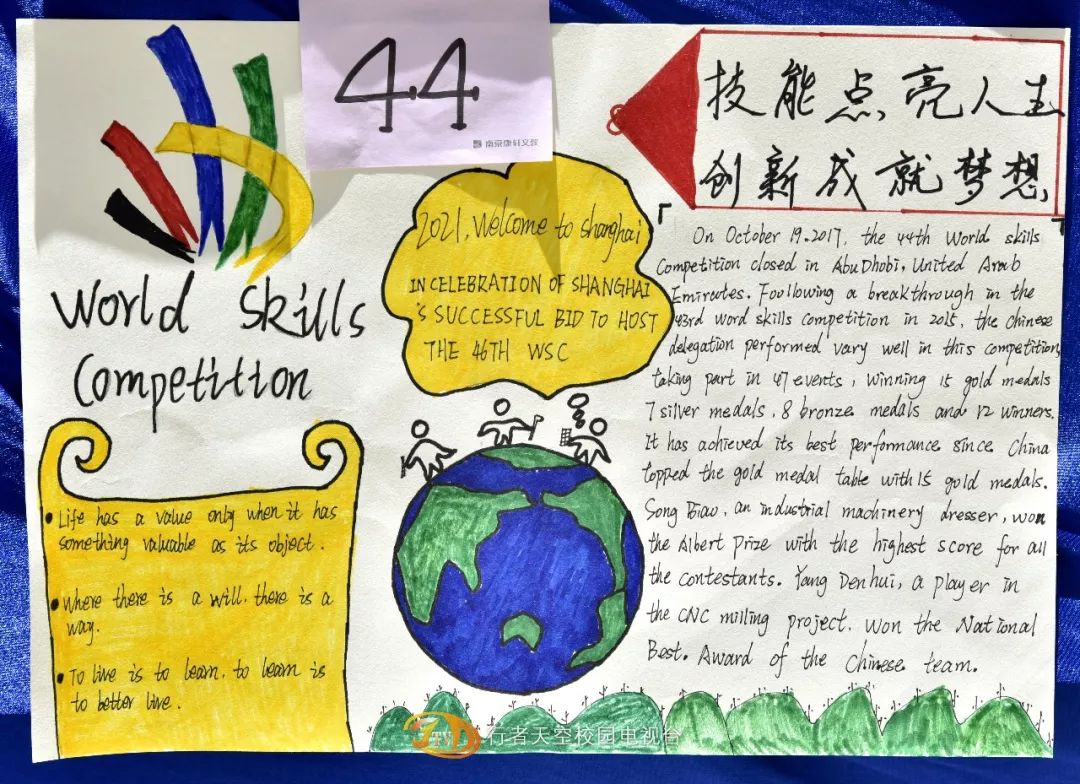 44
南京康轩文教
技能点亮人生
创新成就梦想
World Skills
Competition
2021, Welcome to Shanghai
IN CELEBRATION OF SHANGHAI
'S SUCCESSFUL BID TO HOST
THE 46TH WSC
• Life has a value only when it has
something valuable as its object.
• Where there is a will, there is a
way.
• To live is to learn, to learn is
to better live.
「 On October 19.2017, the 44th World skills 」
Competition closed in AbuDhabi, United Arab
Emirates. Foollowing a breakthrough in the
43rd word skills competition in 2015, the Chinese
delegation performed vary well in this competition,
taking part in 47 events, winning 15 gold medals
7 silver medals, 8 bronze medals and 12 winners.
It has achieved its best performance since China
topped the gold medal table with 15 gold medals.
Song Biao, an industrial machinery dresser, won
the Albert Prize with the highest score for all
the contestants. Yang Denhui, a player in
the CNC milling project, won the National
Best. Award of the Chinese team.
行者天空校园电视台